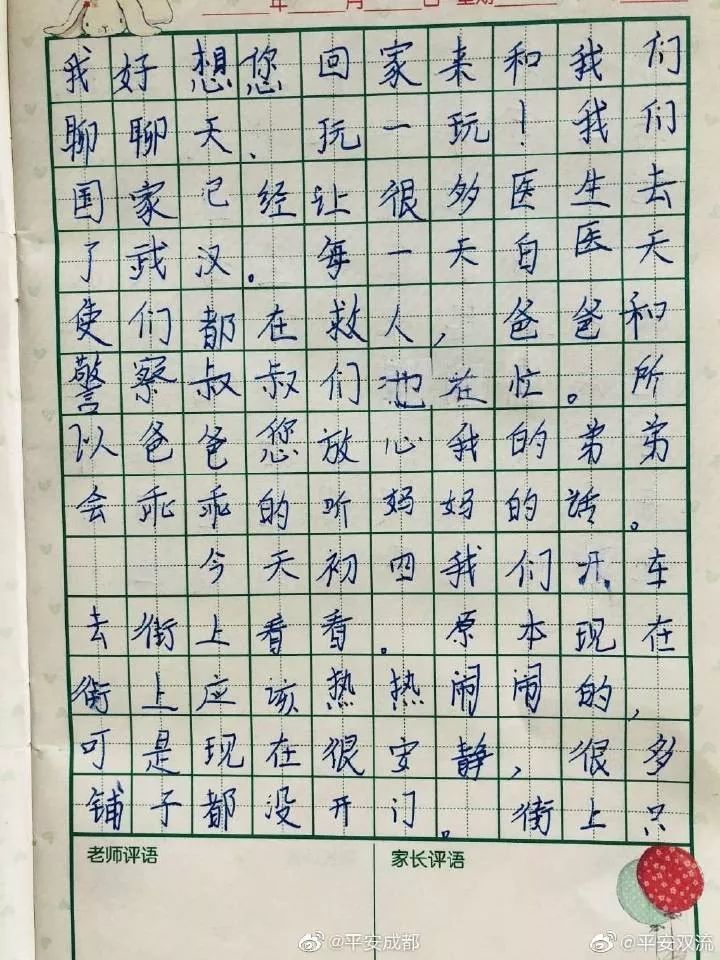 年 月 日 星期
我好想您回家来和我们
聊聊天、玩一玩！我们
国家已经让很多医生去
了武汉。每一天白医天
使们都在救人，爸爸和
警察叔叔们也在忙。所
以爸爸您放心我的弟弟
会乖乖的听妈妈的话。
今天初四我们开车
去街上看看。原本现在
街上应该热热闹闹的，
可是现在很安静，很多
铺子都没开门。街上只
老师评语 家长评语
@平安成都 @平安双流